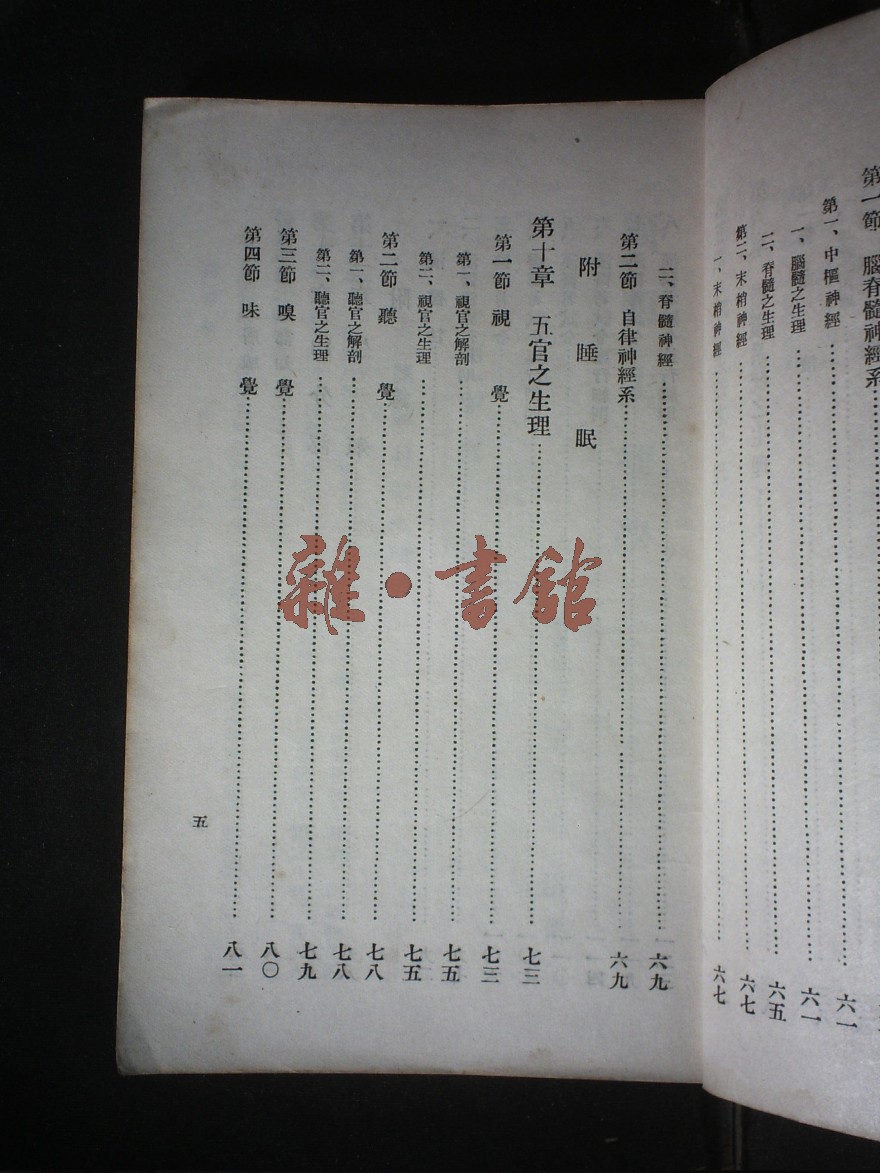 第一節 腦脊髓神經系
第一、中樞神經……六一
一、腦髓之生理……六一
二、脊髓之生理……六五
第二、末梢神經……六七
一、末梢神經……六七
二、脊髓神經……六九
第二節 自律神經系……六九
附 睡 眠
第十章 五官之生理……七三
第一節 視 覺……七三
第一、視官之解剖……七五
第二、視官之生理……七五
第二節 聽 覺……七八
第一、聽官之解剖……七八
第二、聽官之生理……七九
第三節 嗅 覺……八〇
第四節 味 覺……八一
五
雜·書館